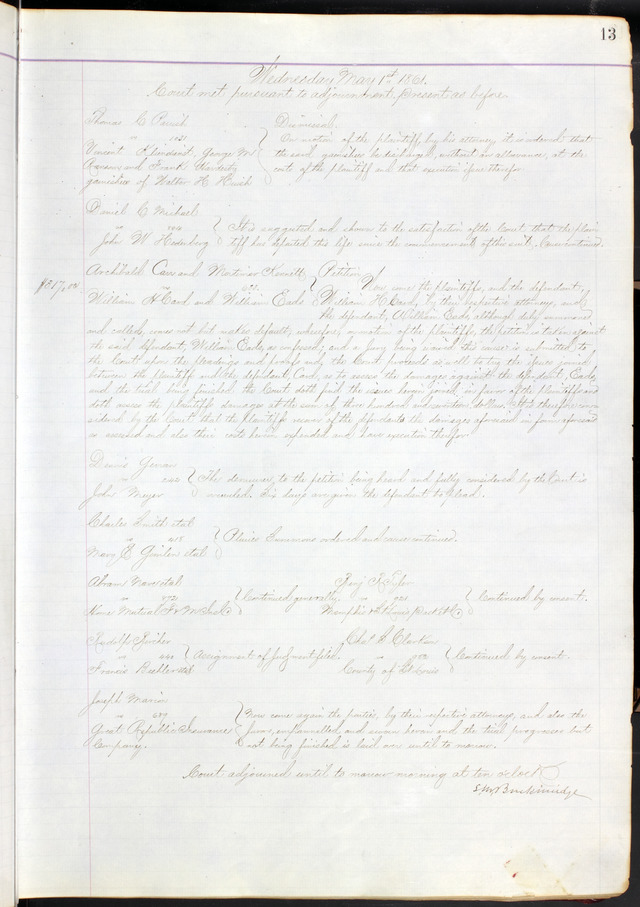 13
Wednesday May 1st 1861.
Court met pursuant to adjournment, present as before.
Thomas C
vs 1031
Vincent George W
and Frank
garnishee of Walter H
Dismissal.
On motion of the plaintiff, by his attorney it is ordered that
the said garnishee be discharged, without an allowance, at the
costs of the plaintiff and that execution issue therefor
Daniel C Michael
vs
John W
It is suggested and shown to the satisfaction of the Court that the plain
tiff has departed this life since the commencement of this suit. Cause continued.
Archibald Carr and
vs
William H Card and William Eads
Petition
Now come the plaintiffs, and the defendant,
William H Card, by their respective attorneys, and
the defendant, William Eads, although duly summoned
and called, comes not but makes default; wherefore, on motion of the plaintiffs, the petition is taken against
the said defendant, William Eads, as confessed; and a jury being waived this cause is submitted to
the Court upon the pleadings and proofs and, the Court proceeds as well to try the issue joined
between the plaintiffs and the defendant, Card, as to assess the damages against the defendant, Eads,
and the trial being finished the Court doth find the issues herein joined in favor of the plaintiffs and
doth assess the plaintiffs damages at the sum of three hundred and seventeen dollars. It is therefore con
sidered by the Court that the plaintiffs recover of the defendants the damages aforesaid in form aforesaid
so assessed and also their costs herein expended and have execution therefor.
Dennis
vs 242
John Meyer
The demurrer, to the petition being heard and fully considered by the Court is
overruled. Six days are given the defendant to plead.
Charles Smith et al
vs 415
Mary E et al
Pluries Summons ordered and cause continued.
Abram et al
vs 572
Home Mutual F & M Ins Co
Continued generally
Benj
vs
Memphis & St Louis Packet Co
Continued by consent.
Rudolph
vs
Francis
Assignment of judgment filed.
Chas
vs
County of St Louis
Continued by consent.
Joseph
vs
Great Republic Insurance
Company.
Now come again the parties, by their respective attorneys, and also the
jury, empannelled and sworn herein and the trial progresses but
not being finished is laid over until to morrow.
Court adjourned until to morrow morning at ten o'clock
S M Breckinridge